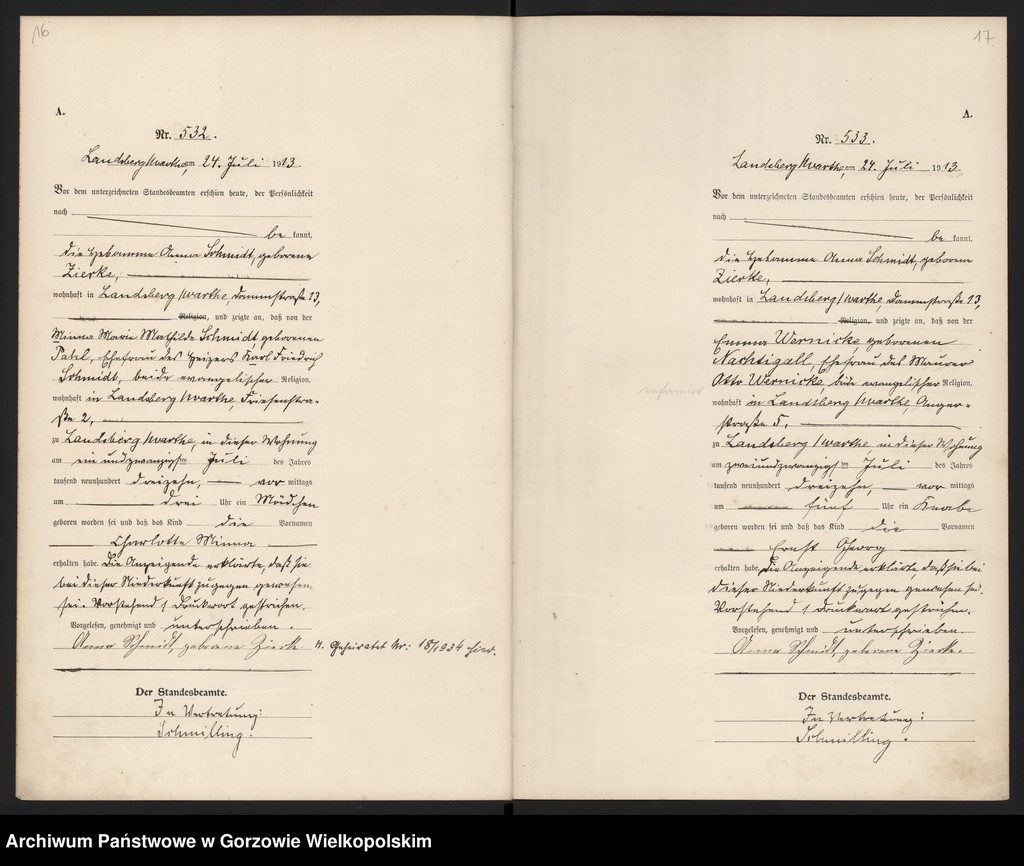 16
A.
Nr. 532.
Landsberg/Warthe, am 24. Juli 1913.
Vor dem unterzeichneten Standesbeamten erschien heute, der Persönlichkeit
nach
be kannt,
die Hebamme Anna Schmidt, geborene
Zierke,
wohnhaft in Landsberg/Warthe, Dammstraße 13,
Religion, und zeigte an, daß von der
Minna Marie Mathilde Schmidt geborenen
Pätel, Ehefrau des Heizers Karl Friedrich
Schmidt, beide evangelischer Religion,
wohnhaft in Landsberg/Warthe, Friesenstra-
ße 2,
zu Landsberg/Warthe, in dieser Wohnung
am ein und zwanzigsten Juli des Jahres
tausend neunhundert dreizehn, vor mittags
um drei Uhr ein Mädchen
geboren worden sei und daß das Kind die Vornamen
Charlotte Minna
erhalten habe. Die Anzeigende erklärte, daß sie
bei dieser Niederkunft zugegen gewesen
sei. Vorstehend 1 Druckwort gestrichen.
Vorgelesen, genehmigt und unterschrieben.
Anna Schmidt, geborene Zierke.
H. Geheiratet Nr: 18/1934 hier.
Der Standesbeamte.
In Vertretung:
Schmilling.
17
A.
Nr. 533.
Landsberg/Warthe, am 24. Juli 1913.
Vor dem unterzeichneten Standesbeamten erschien heute, der Persönlichkeit
nach
be kannt,
die Hebamme Anna Schmidt, geborene
Zierke,
wohnhaft in Landsberg/Warthe, Dammstraße 13,
Religion, und zeigte an, daß von der
Emma Wernicke, geborenen
Nachtigall, Ehefrau des Maurer
Otto Wernicke, beide evangelischer Religion,
reformiert
wohnhaft in Landsberg/Warthe, Anger-
straße 5,
zu Landsberg/Warthe, in dieser Wohnung
am zweiundzwanzigsten Juli des Jahres
tausend neunhundert dreizehn, vor mittags
um fünf Uhr ein Knabe
geboren worden sei und daß das Kind die Vornamen
Ernst Georg
erhalten habe. Die Anzeigende erklärte, daß sie bei
dieser Niederkunft zugegen gewesen sei.
Vorstehend 1 Druckwort gestrichen.
Vorgelesen, genehmigt und unterschrieben.
Anna Schmidt, geborene Zierke.
Der Standesbeamte.
In Vertretung:
Schmilling.
Archiwum Państwowe w Gorzowie Wielkopolskim